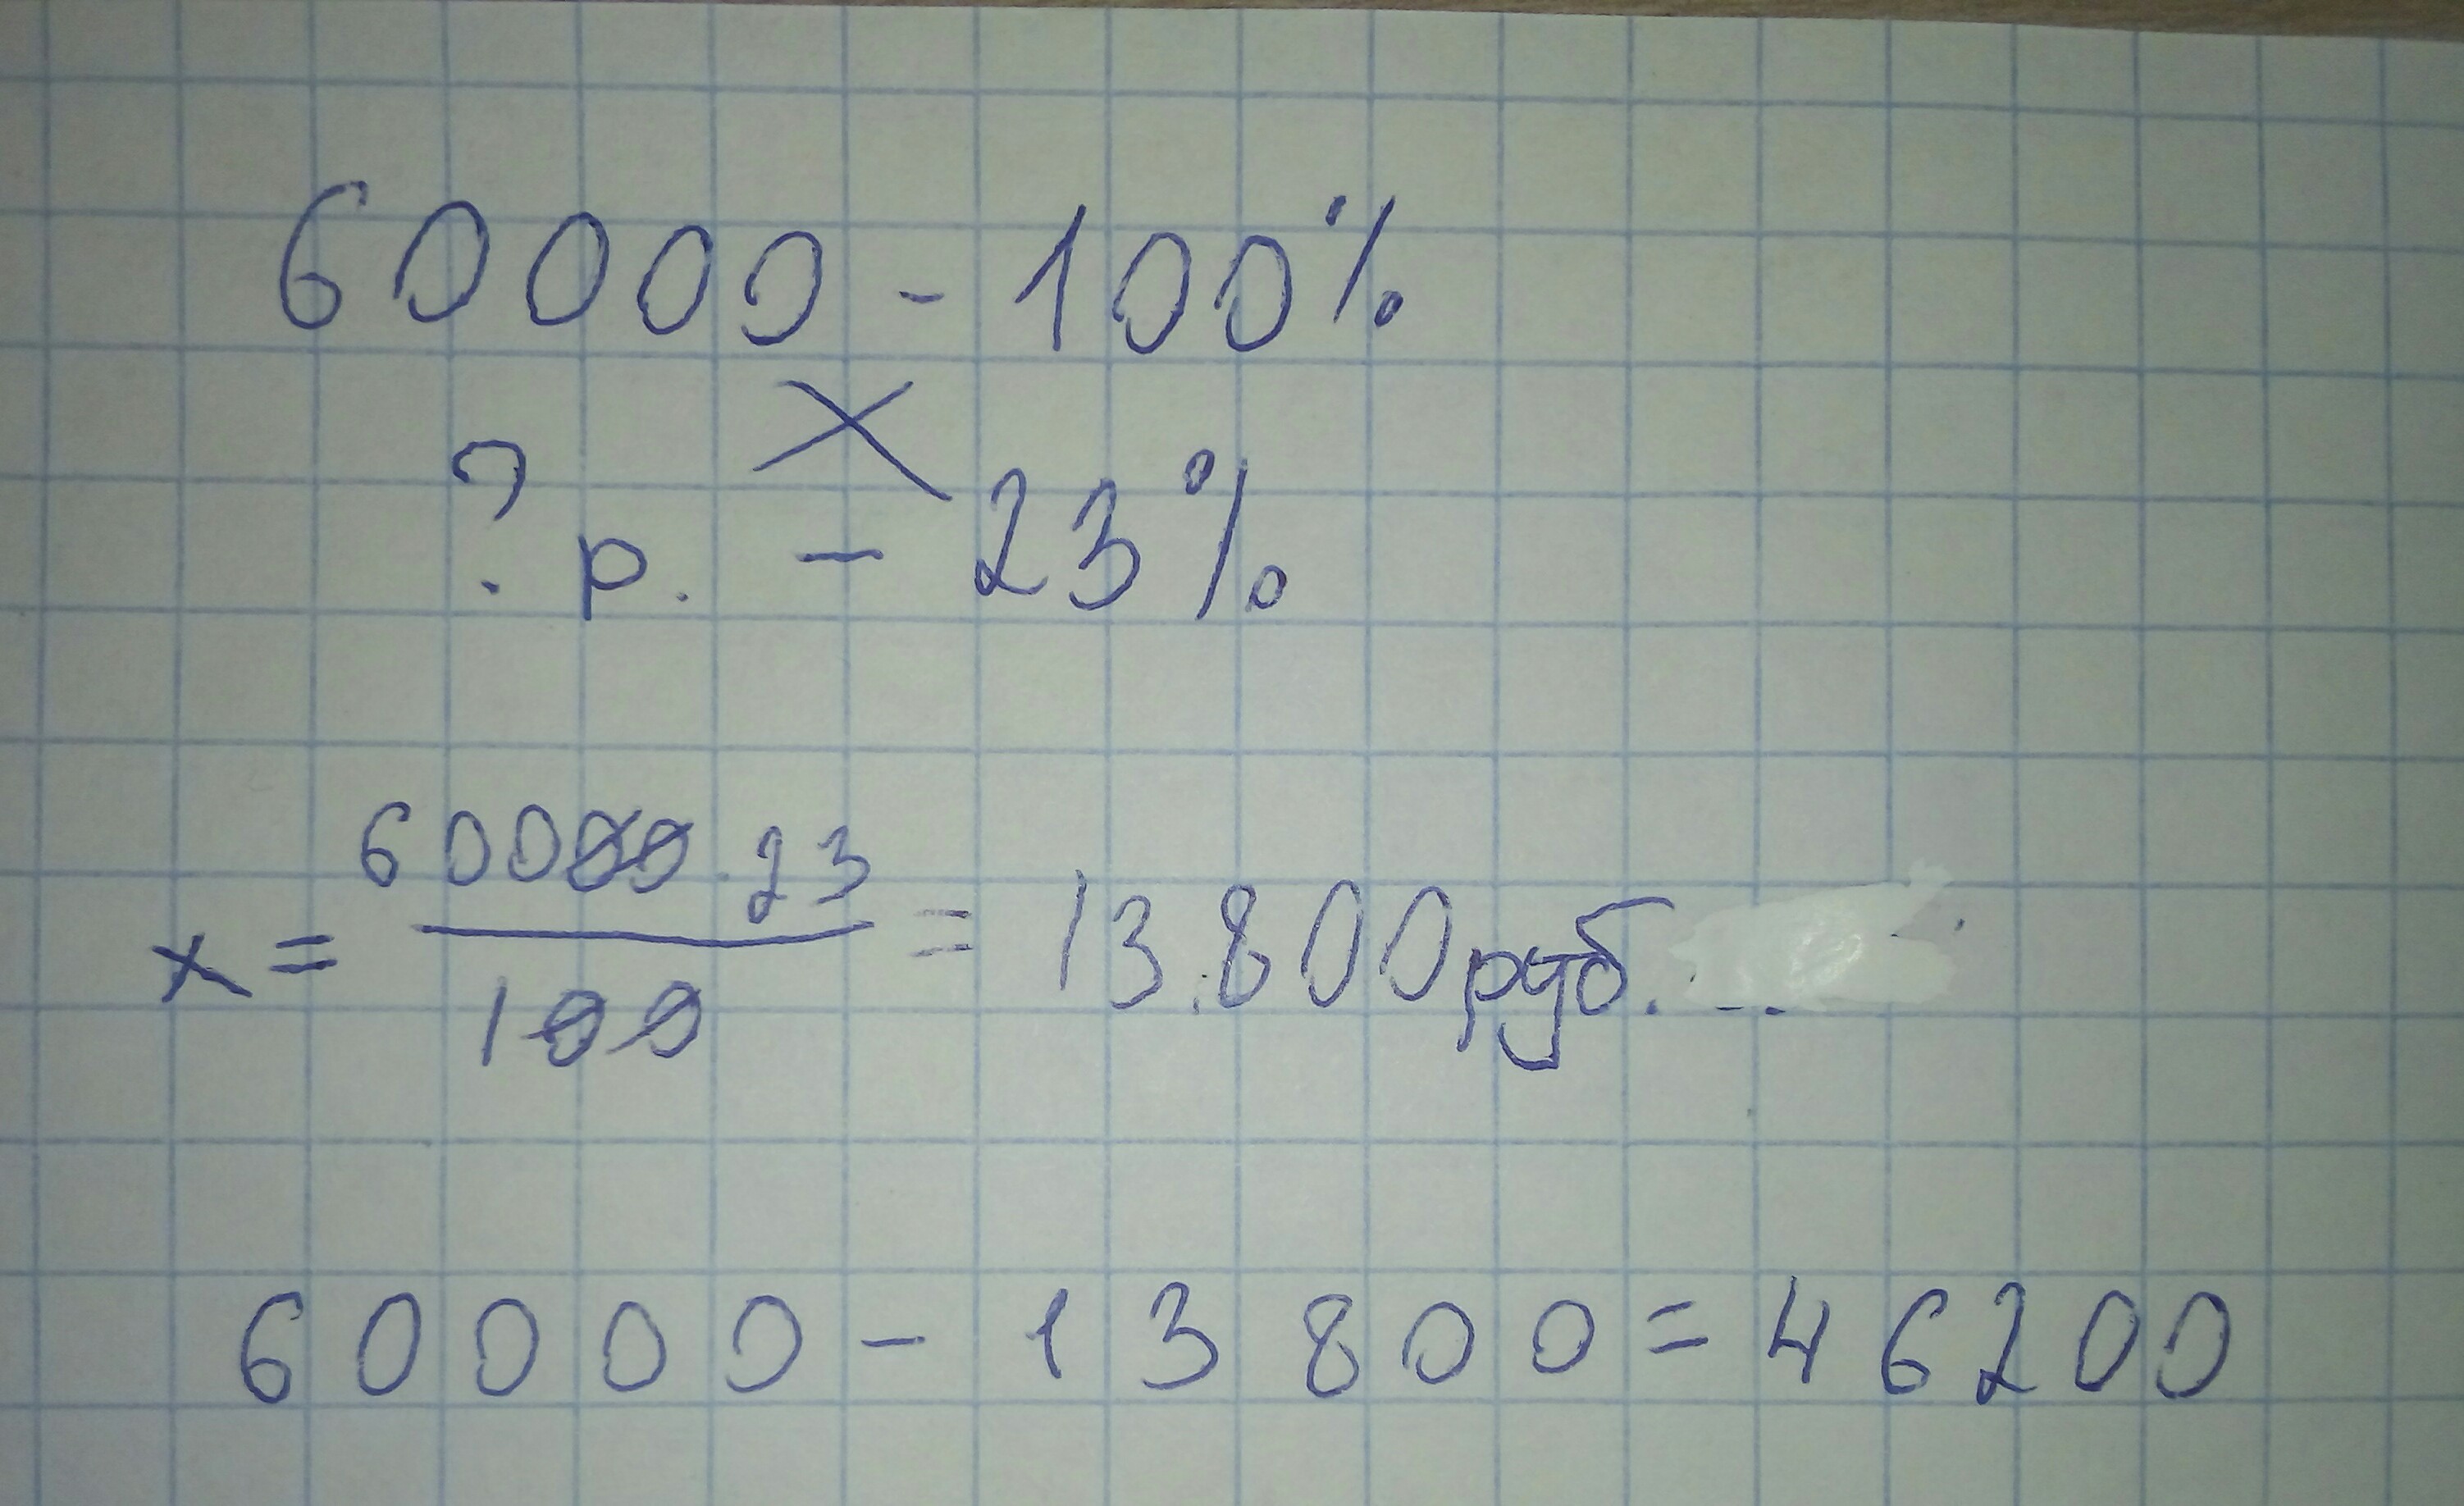 60000 - 100%
X
? р. - 23%
x = 60000 · 23 / 100 = 13.800 руб.
60000 - 13800 = 46200